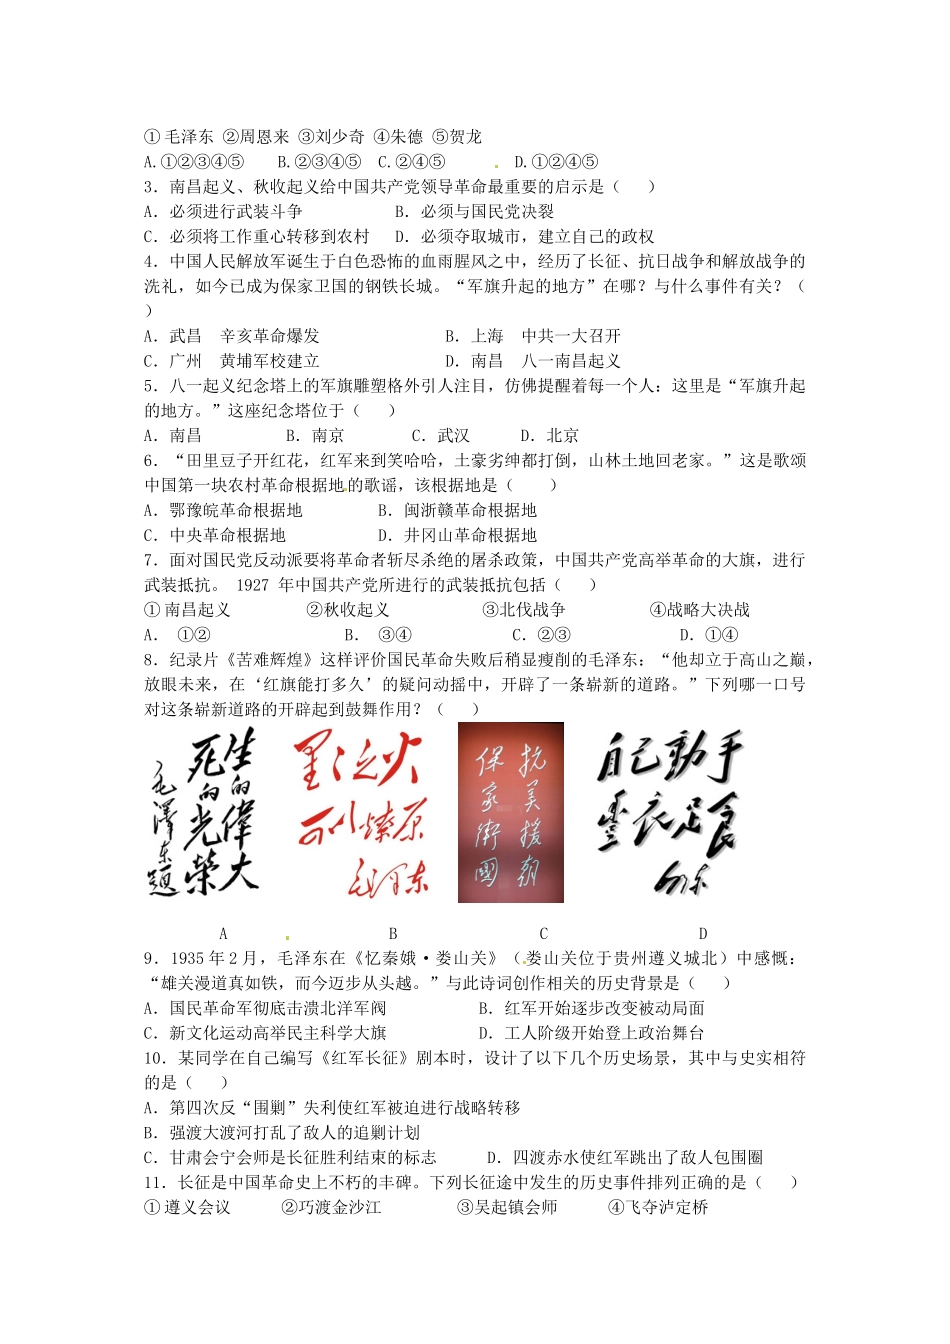 ① 毛泽东 ②周恩来 ③刘少奇 ④朱德 ⑤贺龙
A.①②③④⑤ B.②③④⑤ C.②④⑤ D.①②④⑤
3．南昌起义、秋收起义给中国共产党领导革命最重要的启示是（ ）
A．必须进行武装斗争 B．必须与国民党决裂
C．必须将工作重心转移到农村 D．必须夺取城市，建立自己的政权
4．中国人民解放军诞生于白色恐怖的血雨腥风之中，经历了长征、抗日战争和解放战争的
洗礼，如今已成为保家卫国的钢铁长城。“军旗升起的地方”在哪？与什么事件有关？（
）
A．武昌 辛亥革命爆发 B．上海 中共一大召开
C．广州 黄埔军校建立 D．南昌 八一南昌起义
5．八一起义纪念塔上的军旗雕塑格外引人注目，仿佛提醒着每一个人：这里是“军旗升起
的地方。”这座纪念塔位于（ ）
A．南昌 B．南京 C．武汉 D．北京
6．“田里豆子开红花，红军来到笑哈哈，土豪劣绅都打倒，山林土地回老家。”这是歌颂
中国第一块农村革命根据地的歌谣，该根据地是（ ）
A．鄂豫皖革命根据地 B．闽浙赣革命根据地
C．中央革命根据地 D．井冈山革命根据地
7．面对国民党反动派要将革命者斩尽杀绝的屠杀政策，中国共产党高举革命的大旗，进行
武装抵抗。 1927 年中国共产党所进行的武装抵抗包括（ ）
① 南昌起义 ②秋收起义 ③北伐战争 ④战略大决战
A． ①② B． ③④ C．②③ D．①④
8．纪录片《苦难辉煌》这样评价国民革命失败后稍显瘦削的毛泽东：“他却立于高山之巅，
放眼未来，在‘红旗能打多久’的疑问动摇中，开辟了一条崭新的道路。”下列哪一口号
对这条崭新道路的开辟起到鼓舞作用？（ ）
生的偉大
死的光榮
毛澤东題
星星之火
可以燎原
毛泽东
抗美援朝
保家衛國
自己動手
豐衣足食
毛泽东
A B C D
9．1935 年 2 月，毛泽东在《忆秦娥·娄山关》（娄山关位于贵州遵义城北）中感慨：
“雄关漫道真如铁，而今迈步从头越。”与此诗词创作相关的历史背景是（ ）
A．国民革命军彻底击溃北洋军阀 B．红军开始逐步改变被动局面
C．新文化运动高举民主科学大旗 D．工人阶级开始登上政治舞台
10．某同学在自己编写《红军长征》剧本时，设计了以下几个历史场景，其中与史实相符
的是（ ）
A．第四次反“围剿”失利使红军被迫进行战略转移
B．强渡大渡河打乱了敌人的追剿计划
C．甘肃会宁会师是长征胜利结束的标志 D．四渡赤水使红军跳出了敌人包围圈
11．长征是中国革命史上不朽的丰碑。下列长征途中发生的历史事件排列正确的是（ ）
① 遵义会议 ②巧渡金沙江 ③吴起镇会师 ④飞夺泸定桥